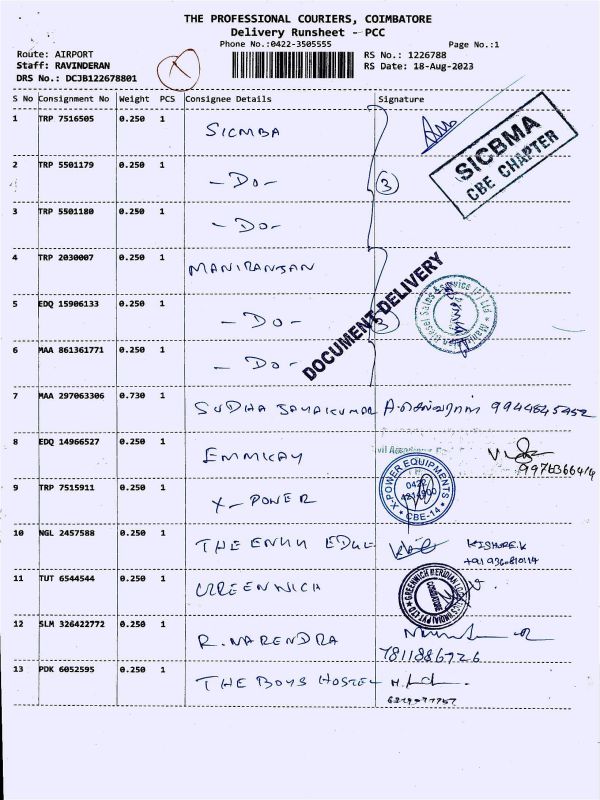 THE PROFESSIONAL COURIERS, COIMBATORE
Delivery Runsheet - PCC
Phone No.:0422-3505555 Page No.:1
Route: AIRPORT RS No.: 1226788
Staff: RAVINDERAN RS Date: 18-Aug-2023
DRS No.: DCJB122678801
S No Consignment No Weight PCS Consignee Details Signature
1 TRP 7516505 0.250 1 SICMBA
SICBMA
CBE CHAPTER
2 TRP 5501179 0.250 1 - DO - 3
3 TRP 5501180 0.250 1 - DO -
4 TRP 2030007 0.250 1 MANIRANJAN
DOCUMENT DELIVERY
5 EDQ 15906133 0.250 1 - DO - 3
Diesel Sales & Service (P) Ltd
6 MAA 861361771 0.250 1 - DO -
7 MAA 297063306 0.730 1 SUDHA JAYAKUMAR 9944845452
8 EDQ 14966527 0.250 1 EMMKAY
9 TRP 7515911 0.250 1 X-POWER
X-POWER EQUIPMENTS
0422
CBE-14
10 NGL 2457588 0.250 1 THE KISHORE.K
11 TUT 6544544 0.250 1 GREENWICH
GREENWICH MERIDIAN
COIMBATORE
12 SLM 326422772 0.250 1 R. NARENDRA
7811886726
13 PDK 6052595 0.250 1 THE BOYS HOSTEL